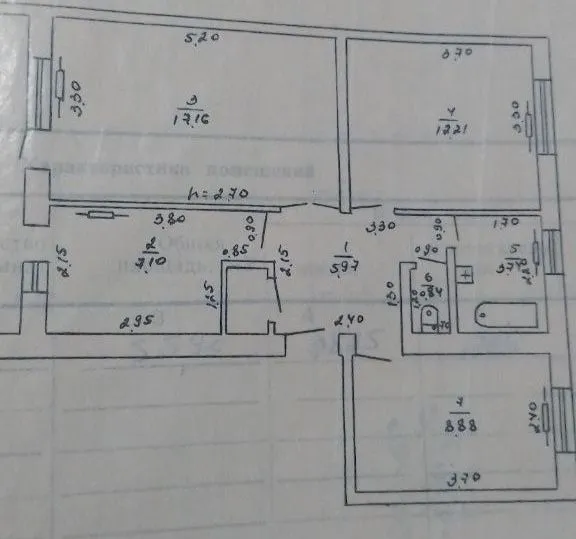 5.20
3.70
3.30
3
17.16
4
12.21
3.30
Характеристика помещений
h=2.70
3.80
0.90
3.30
0.90
1.70
2.15
2
7.10
0.85
2.15
1
5.97
0.90
5
6
0.84
1.25
1.30
1.20
2.95
2.40
8.88
2.40
3.70